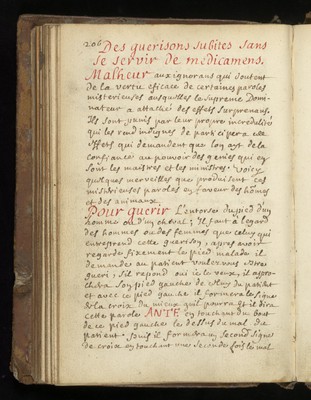 206
Des guerisons subites sans
se servir de medicamens.
Malheur aux ignorans qui doutent
de la vertu eficace de certaines paroles
misterieuses ausquelles le supreme Domi-
nateur a attaché des effets surprenans.
Ils sont punis par leur propre incredulité
qui les rend indignes de participer a ces
effets qui demandent que l'on ayt de la
confiance au pouvoir des genies qui en
sont les maistres et les ministres. voicy
quelques merveilles que produisent ces
misterieuses paroles en faveur des homes
et des animaux.
Pour guerir L'entorse du pied d'un
homme ou d'un cheval; Il faut a l'egard
des hommes ou des femmes que celuy qui
entreprend cette guerison, apres avoir
regardé fixement le pied malade il
demande au patient voulez vous estre
gueri; s'il repond oui ie le veux, il appro-
chera son pied gauche de celuy du patient
et avec ce pied gauche il formera le signe
de la croix du mieux qu'il pourra et il dira
cette parole ANTE en touchant du bout
de ce pied gauche le dessus du mal du
patient. puis il formera un second signe
de croix en touchant une seconde fois le mal